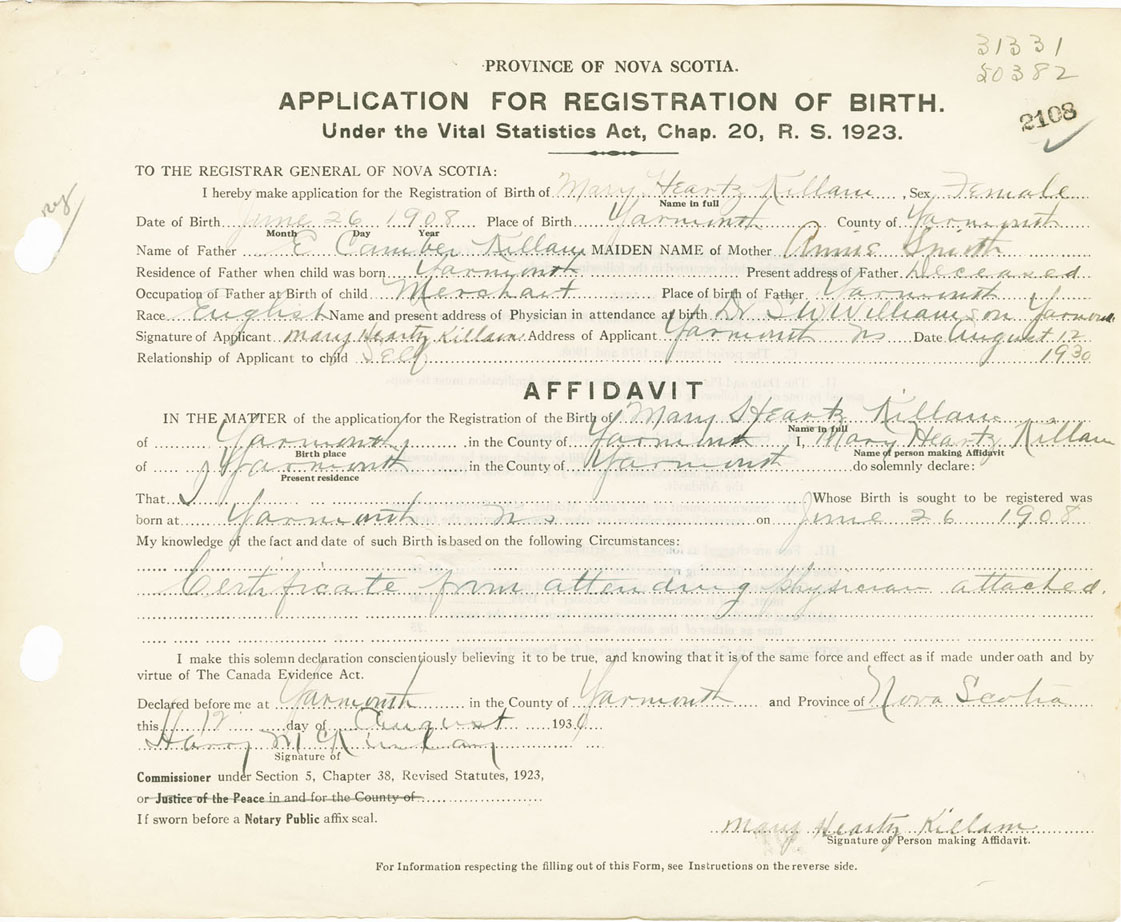 31331
50382
PROVINCE OF NOVA SCOTIA.
APPLICATION FOR REGISTRATION OF BIRTH.
2108
Under the Vital Statistics Act, Chap. 20, R. S. 1923.
TO THE REGISTRAR GENERAL OF NOVA SCOTIA:
I hereby make application for the Registration of Birth of Mary Heartz Killam, Sex Female
Name in full
Date of Birth June 26 1908 Place of Birth Yarmouth County of Yarmouth
Month Day Year
Name of Father E Camber Killam MAIDEN NAME of Mother Annie Smith
Residence of Father when child was born Yarmouth Present address of Father Deceased
Occupation of Father at Birth of child Merchant Place of birth of Father Yarmouth
Race English Name and present address of Physician in attendance at birth Dr S W Williamson Yarmouth
Signature of Applicant Mary Heartz Killam Address of Applicant Yarmouth Ns Date August 12
Relationship of Applicant to child Self 1930
AFFIDAVIT
IN THE MATTER of the application for the Registration of the Birth of Mary Heartz Killam
Name in full
of Yarmouth in the County of Yarmouth I, Mary Heartz Killam
Birth place Name of person making Affidavit
of Yarmouth in the County of Yarmouth do solemnly declare:
Present residence
That I Whose Birth is sought to be registered was
born at Yarmouth Ns on June 26 1908
My knowledge of the fact and date of such Birth is based on the following Circumstances:
Certificate from attending physician attached.
I make this solemn declaration conscientiously believing it to be true, and knowing that it is of the same force and effect as if made under oath and by
virtue of The Canada Evidence Act.
Declared before me at Yarmouth in the County of Yarmouth and Province of Nova Scotia
this 12 day of August 1930
Harry
Signature of
Commissioner under Section 5, Chapter 38, Revised Statutes, 1923,
or Justice of the Peace in and for the County of
If sworn before a Notary Public affix seal.
Mary Heartz Killam
Signature of Person making Affidavit.
For Information respecting the filling out of this Form, see Instructions on the reverse side.